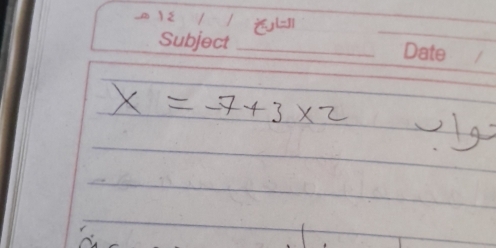 التاريخ / / ١٤ هـ
Subject Date /
X = -7+3×2